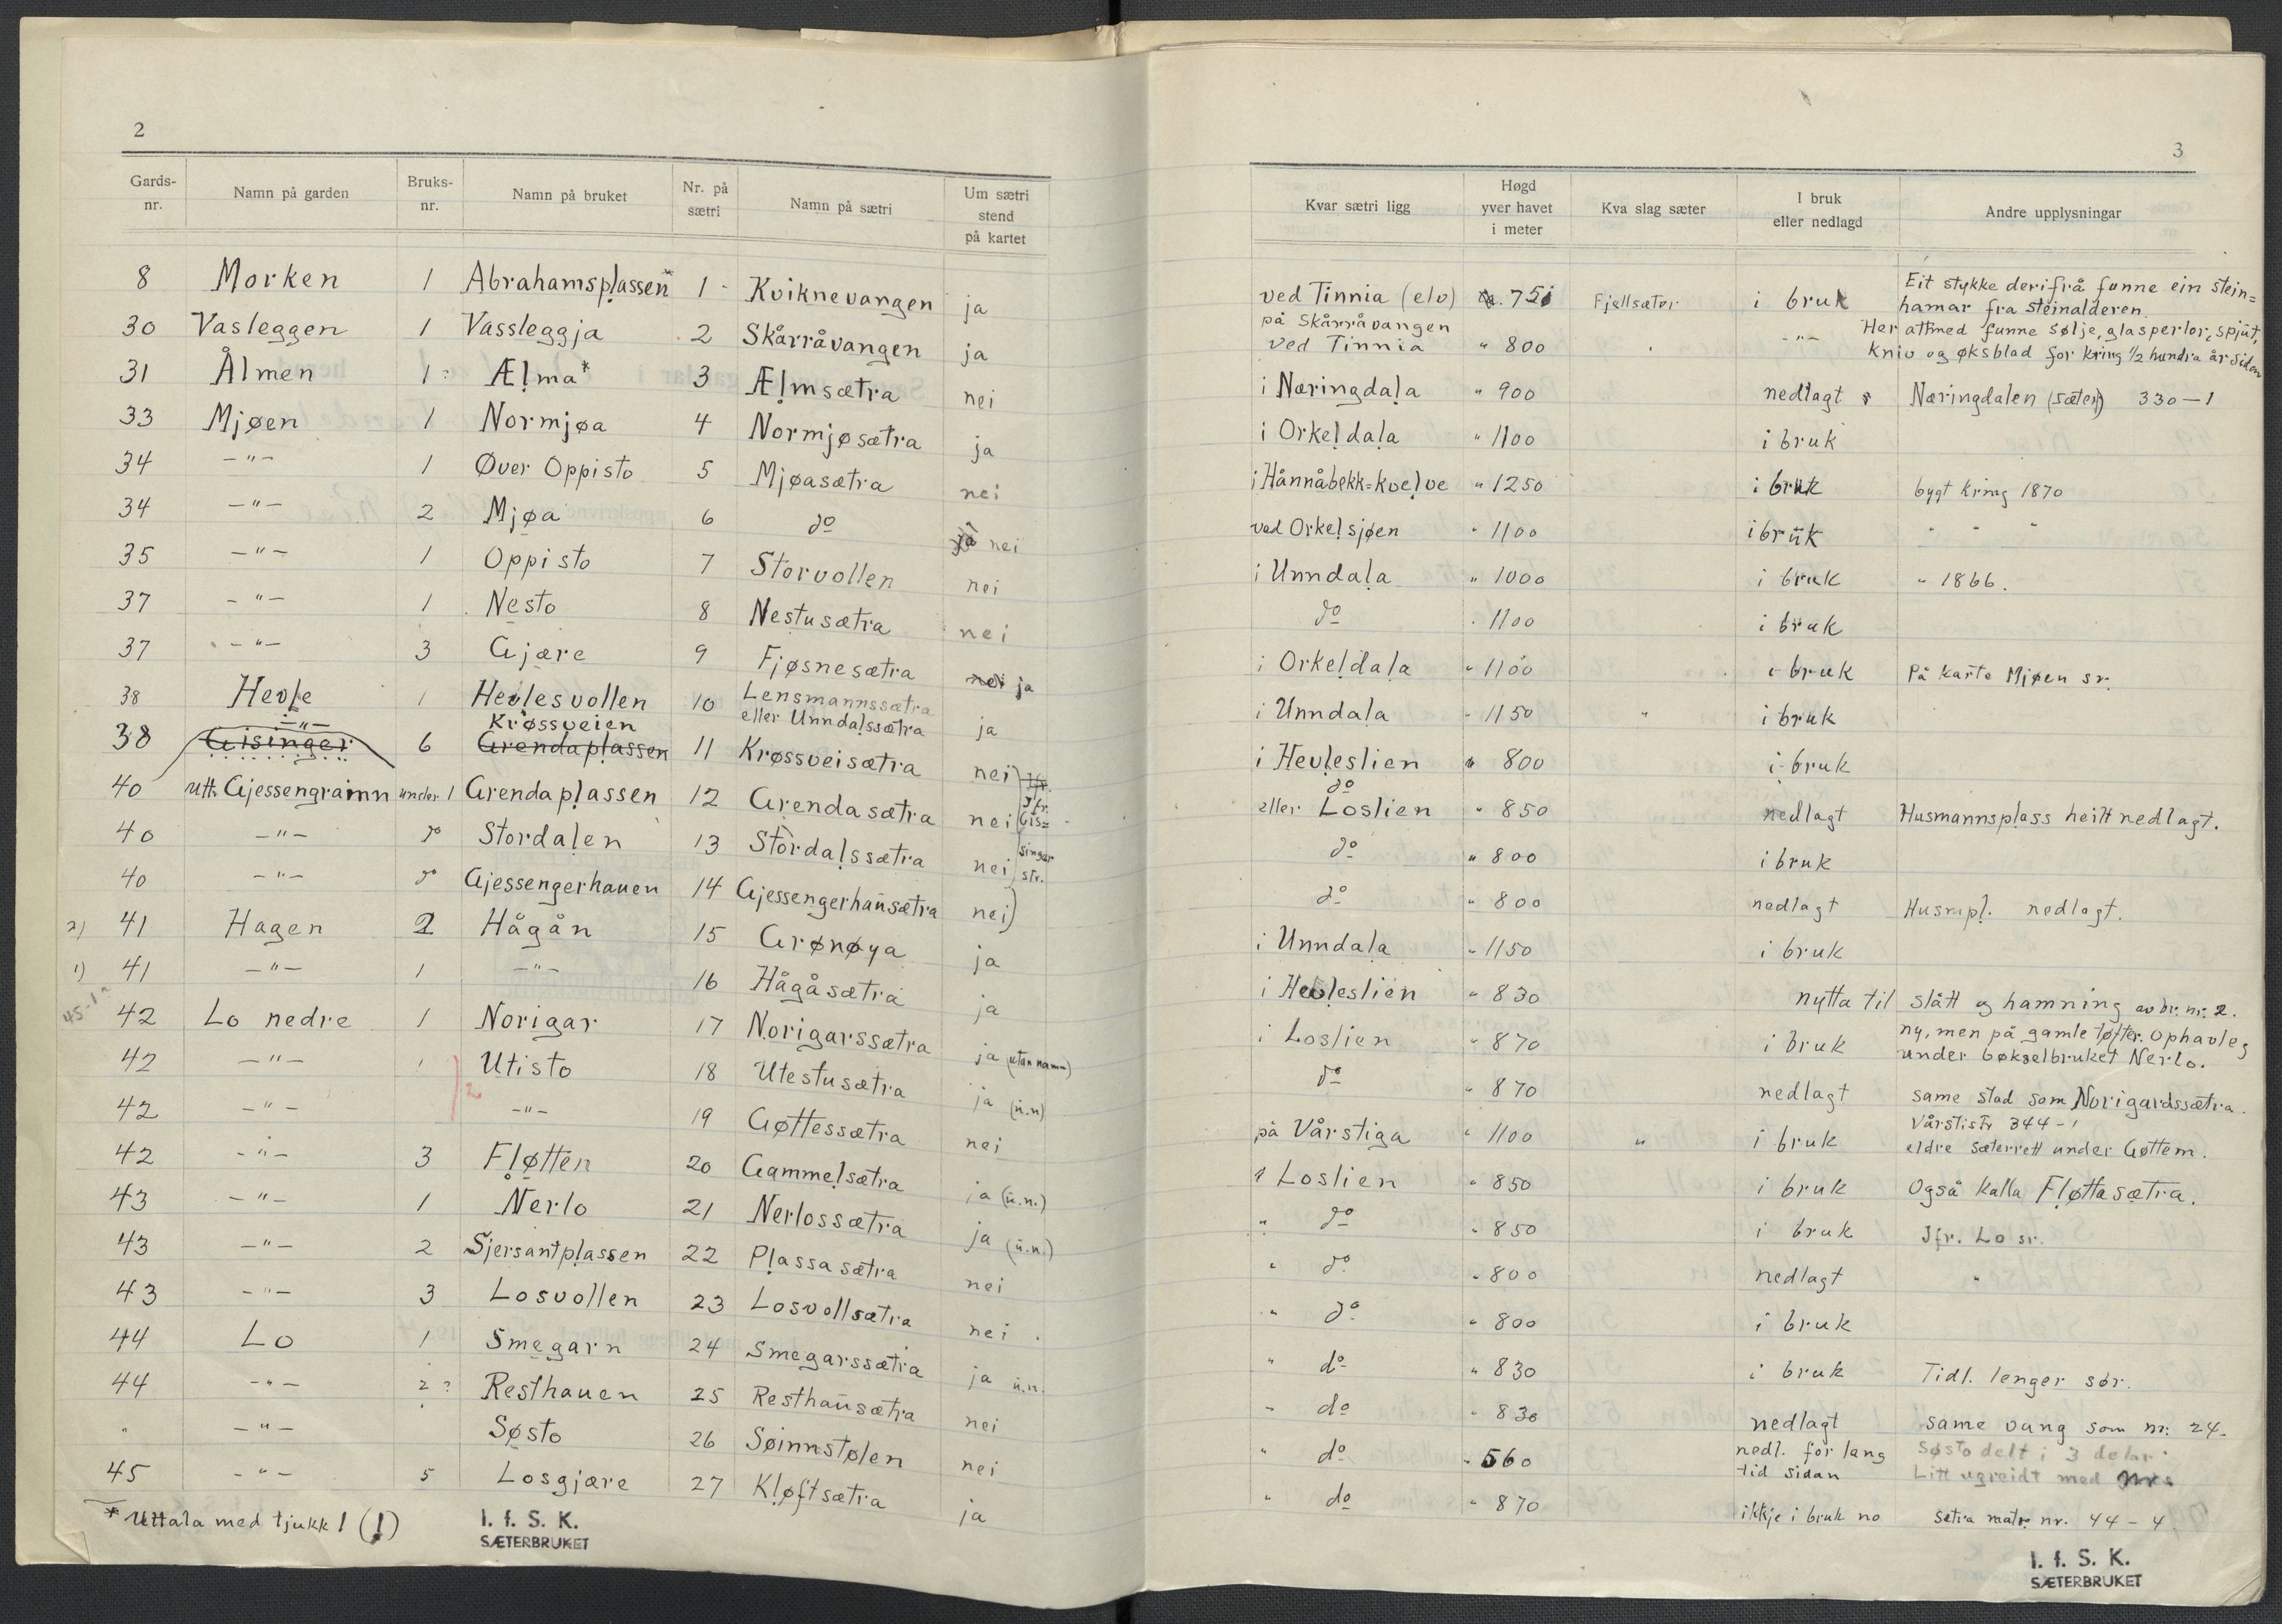 2
Gards-nr. Namn på garden Bruks-nr. Namn på bruket Nr. på sætri Namn på sætri Um sætri stend på kartet
8 Morken 1 Abrahamspḷassen* 1 Kviknevangen ja
30 Vasleggen 1 Vassleggja 2 Skårråvangen ja
31 Ålmen 1? Æḷma* 3 Æḷmsætra nei
33 Mjøen 1 Normjøa 4 Normjøsætra ja
34 -"- 1 Øver Oppisto 5 Mjøasætra nei
34 -"- 2 Mjøa 6 do ja nei
35 -"- 1 Oppisto 7 Storvollen nei
37 -"- 1 Nesto 8 Nestusætra nei
37 -"- 3 Gjære 9 Fjøsnesætra nei ja
38 Hevḷe 1 Hevlesvollen 10 Lensmannssætra eller Unndaḷssætra ja
38 -"- Gisinger 6 Krøssveien Grendapḷassen 11 Krøssveisætra nei
40 utt. Gjessengrainn under 1 Grendapḷassen 12 Grendasætra nei Jfr. Gis=
40 -"- do Stordaḷen 13 Stordaḷssætra nei singer str.
40 -"- do Gjessengerhauen 14 Gjessengerhausætra nei
2) 41 Hagen 2 Hågån 15 Grønøya ja
1) 41 -"- 1 -"- 16 Hågåsætra ja
45-1?
42 Lo nedre 1 Norigar 17 Norigarssætra ja (utan namn)
42 -"- Utisto 18 Utestusætra ja (u.n)
2
42 -"- -"- 19 Gøttessætra nei
42 -"- 3 Fḷøtten 20 Gammeḷsætra ja (u.n.)
43 -"- 1 Nerlo 21 Nerlossætra ja (u.n.)
43 -"- 2 Sjersantpḷassen 22 Pḷassasætra nei
43 -"- 3 Losvollen 23 Losvollsætra nei
44 Lo 1 Smegarn 24 Smegarssætra ja u.n.
44 -"- 2? Resthauen 25 Resthausætra nei
" -"- Søsto 26 Søinnstølen nei
45 -"- 5 Losgjære 27 Kḷøftsætra ja
* Uttala med tjukk l (ḷ)
I. f. S. K.
SÆTERBRUKET
3
Kvar sætri ligg Høgd yver havet i meter Kva slag sæter I bruk eller nedlagd Andre upplysningar
ved Tinnia (elv) ca. 750 Fjellsæter i bruk Eit stykke derifrå funne ein stein=
hamar fra steinalderen.
på Skårråvangen
ved Tinnia " 800 " -"- Her attmed funne sølje, glasperlor, spjut,
kniv og øksblad for kring 1/2 hundra år siden
i Næringdaḷa " 900 nedlagt Næringdalen (sæter) 330-1
i Orkeḷdaḷa " 1100 i bruk
i Hånnåbekk=kveḷve " 1250 i bruk bygt kring 1870
ved Orkeḷsjøen " 1100 i bruk " " "
i Unndaḷa " 1000 i bruk " 1866.
do " 1100 i bruk
i Orkeḷdaḷa " 1100 i bruk På karte Mjøen sr.
i Unndaḷa " 1150 " i bruk
i Hevḷeslien " 800 i bruk
do
eller Loslien " 850 nedlagt Husmannspḷass heilt nedlagt.
do " 800 i bruk
do " 800 nedlagt Husmpḷ. nedlagt.
i Unndaḷa " 1150 i bruk
i Hevḷeslien " 830 nytta til slått og hamning av br. nr. 2.
i Loslien " 870 i bruk ny, men på gamle tøfter. Ophavleg
under bøkselbruket Nerlo.
do " 870 nedlagt same stad som Norigardssætra.
på Vårstiga " 1100 " i bruk Vårstistr 344-1
eldre sæterrett under Gøttem.
i Loslien " 850 i bruk Også kalla Fḷøttasætra.
" do " 850 i bruk Jfr. Lo sr.
" do " 800 nedlagt "
" do " 800 i bruk
" do " 830 i bruk Tidl. lenger sør.
" do " 830 nedlagt same vang som nr. 24.
" do " 560 nedl. for lang tid sidan Søsto delt i 3 delar
Litt ugreidt med
" do " 870 ikkje i bruk no setra matr. nr. 44-4.
I. f. S. K.
SÆTERBRUKET